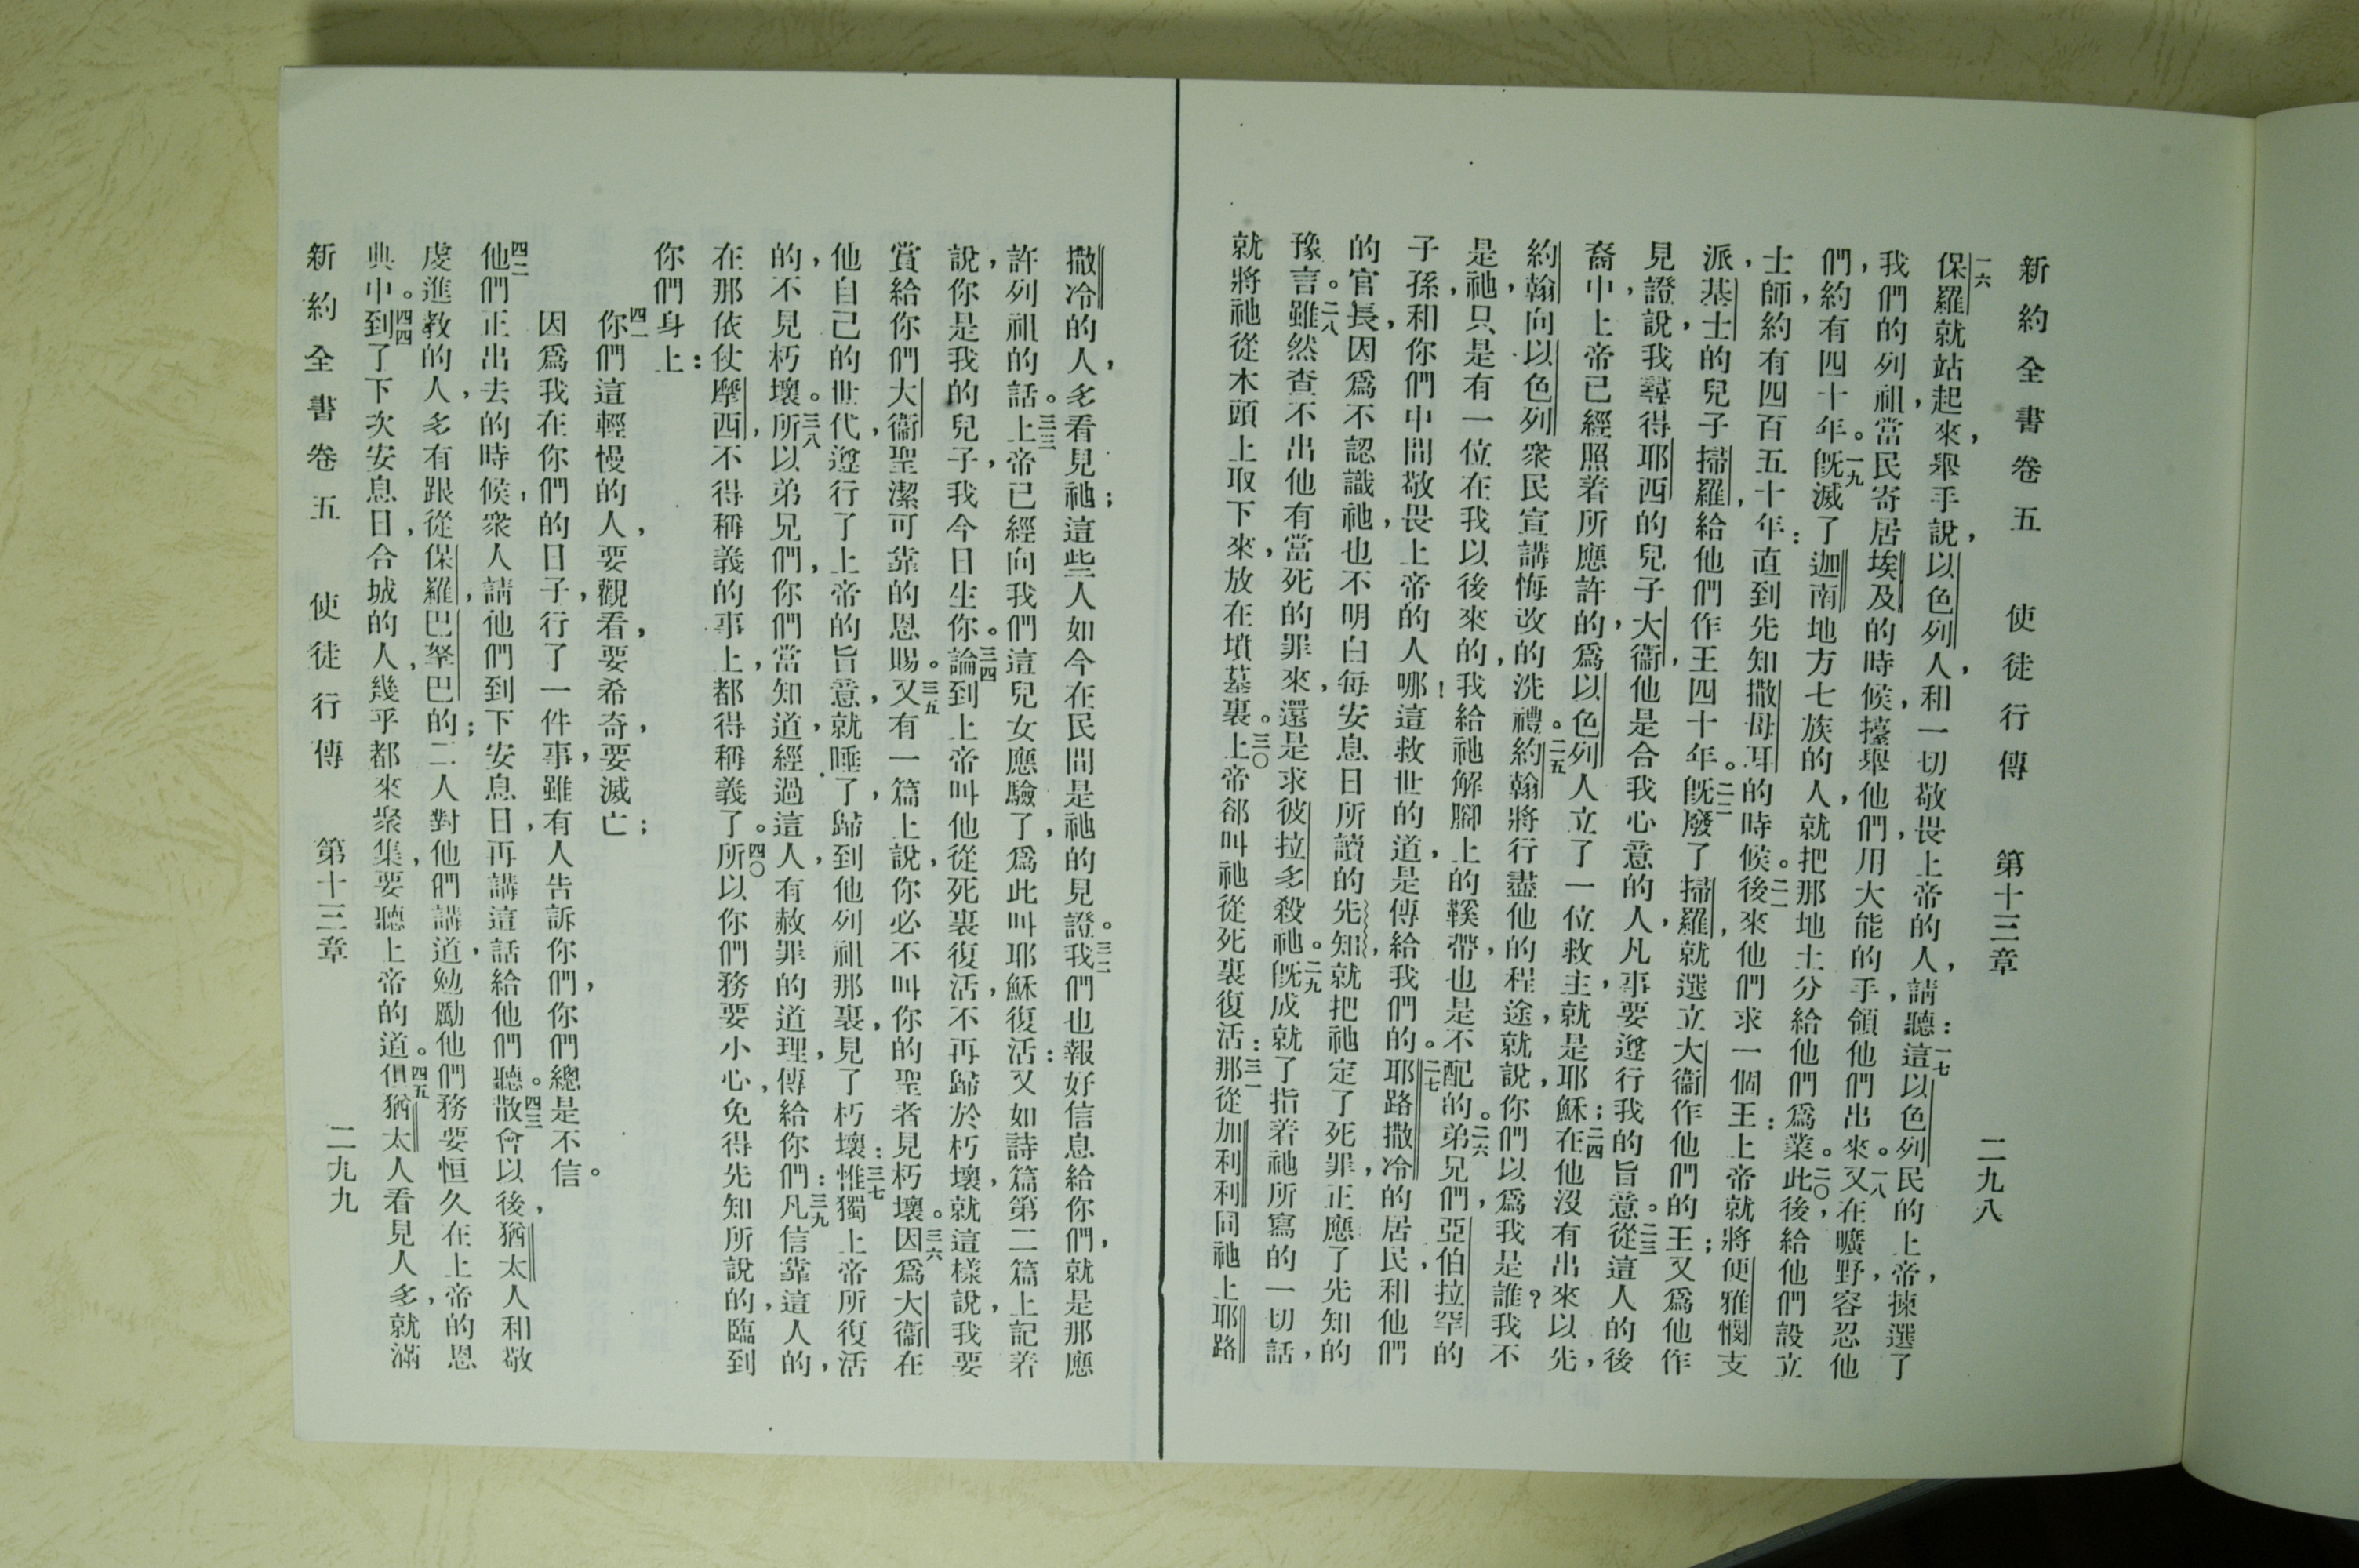 新約全書卷五　使徒行傳　第十三章　二九八
一六保羅就站起來，舉手說，以色列人，和一切敬畏上帝的人，請聽：一七這以色列民的上帝，揀選了
我們的列祖，當民寄居埃及的時候，擡舉他們，用大能的手，領他們出來。一八又在曠野，容忍他
們，約有四十年。一九旣滅了迦南地方七族的人，就把那地土分給他們爲業。二〇此後，給他們設立
士師，約有四百五十年：直到先知撒母耳的時候。二一後來他們求一個王：上帝就將便雅憫支
派，基士的兒子掃羅，給他們作王四十年。二二旣廢了掃羅，就選立大衞作他們的王；又爲他作
見證，說我尋得耶西的兒子大衞，他是合我心意的人，凡事要遵行我的旨意。二三從這人的後
裔中，上帝已經照着所應許的，爲以色列人立了一位救主，就是耶穌；二四在他沒有出來以先，
約翰向以色列衆民宣講悔改的洗禮。二五約翰將行盡他的程途，就說，你們以爲我是誰？我不
是祂，只是有一位在我以後來的，我給祂解腳上的鞵帶，也是不配的。二六弟兄們，亞伯拉罕的
子孫，和你們中間敬畏上帝的人哪！這救世的道，是傳給我們的。二七耶路撒冷的居民，和他們
的官長，因爲不認識祂，也不明白每安息日所讀的先知，就把祂定了死罪，正應了先知的
豫言。二八雖然查不出他有當死的罪來，還是求彼拉多殺祂。二九旣成就了指着祂所寫的一切話，
就將祂從木頭上取下來，放在墳墓裏。三〇上帝郤叫祂從死裏復活：三一那從加利利同祂上耶路
撒冷的人，多看見祂；這些人如今在民間是祂的見證。三二我們也報好信息給你們，就是那應
許列祖的話。三三上帝已經向我們這兒女應驗了，爲此叫耶穌復活：又如詩篇第二篇上記着
說，你是我的兒子，我今日生你。三四論到上帝叫他從死裏復活，不再歸於朽壞，就這樣說，我要
賞給你們大衞聖潔可靠的恩賜。三五又有一篇上說，你必不叫你的聖者見朽壞。三六因爲大衞在
他自己的世代，遵行了上帝的旨意，就睡了，歸到他列祖那裏，見了朽壞：三七惟獨上帝所復活
的，不見朽壞。三八所以弟兄們，你們當知道，經過這人，有赦罪的道理，傳給你們：三九凡信靠這人的，
在那依仗摩西，不得稱義的事上，都得稱義了。四〇所以你們務要小心，免得先知所說的，臨到
你們身上：
四一你們這輕慢的人，要觀看，要希奇，要滅亡；
因爲我在你們的日子，行了一件事，雖有人告訴你們，你們總是不信。
四二他們正出去的時候，衆人請他們到下安息日，再講這話給他們聽。四三散會以後，猶太人和敬
虔進教的人，多有跟從保羅，巴拏巴的；二人對他們講道，勉勵他們務要恒久在上帝的恩
典中。四四到了下次安息日，合城的人，幾乎都來聚集，要聽上帝的道。四五但猶太人看見人多，就滿
新約全書卷五　使徒行傳　第十三章　二九九